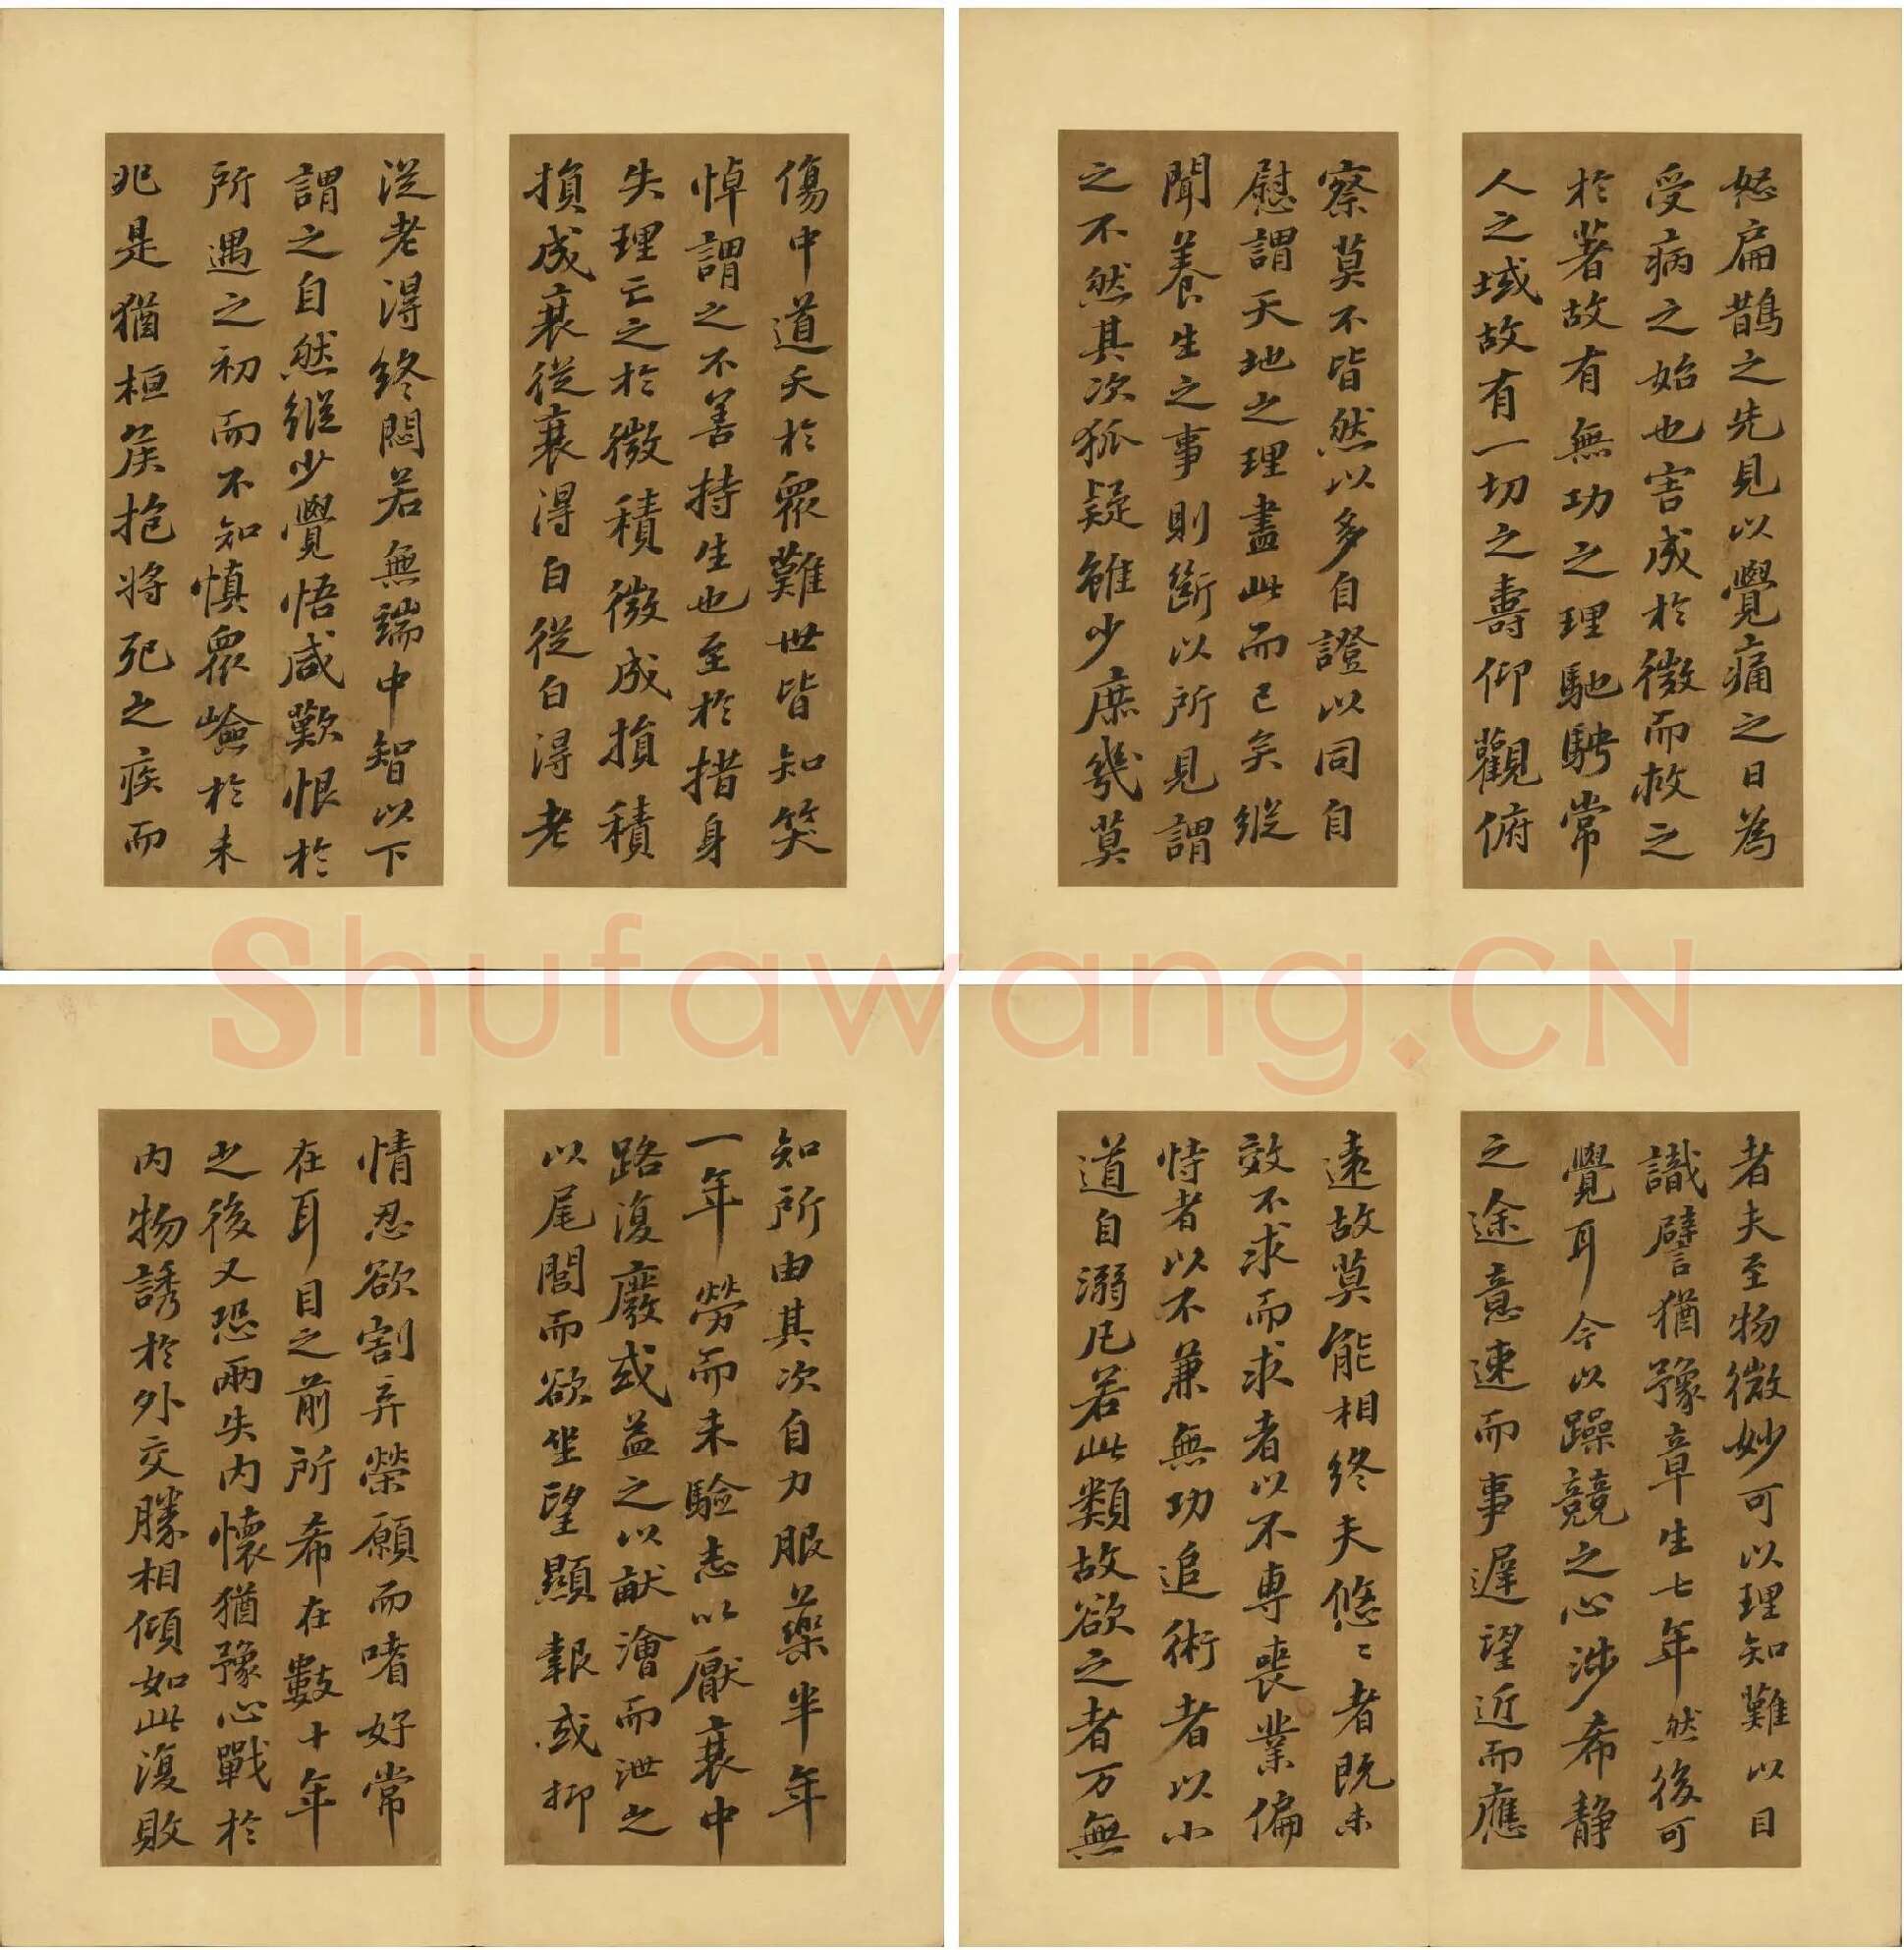 傷中道夭於衆難世皆知笑
悼謂之不善持生也至於措身
失理亡之於微積微成損積
損成衰從衰得白從白得老
從老得終悶若無端中智以下
謂之自然縱少覺悟咸歎恨於
所遇之初而不知慎衆嶮於未
兆是猶桓侯抱將死之疾而
怒扁鵲之先見以覺痛之日為
受病之始也害成於微而救之
於著故有無功之理馳騁常
人之域故有一切之壽仰觀俯
察莫不皆然以多自證以同自
慰謂天地之理盡此而已矣縱
聞養生之事則斷以所見謂
之不然其次狐疑雖少庶幾莫
知所由其次自力服藥半年
一年勞而未驗志以厭衰中
路復廢或益之以畎澮而泄之
以尾閭而欲坐望顯報或抑
情忍欲割弃榮願而嗜好常
在耳目之前所希在數十年
之後又恐兩失內懷猶豫心戰於
內物誘於外交賒相傾如此復敗
者夫至物微妙可以理知難以目
識譬猶豫章生七年然後可
覺耳今以躁競之心涉希靜
之途意速而事遲望近而應
遠故莫能相終夫悠〻者既未
效不求而求者以不專喪業偏
恃者以不兼無功追術者以小
道自溺凡若此類故欲之者万無
Shufawang.CN